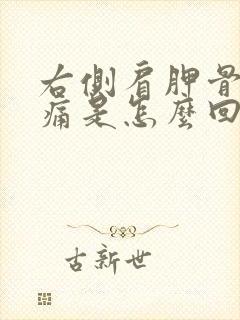 右側肩胛骨
痛是怎麼回
古新世